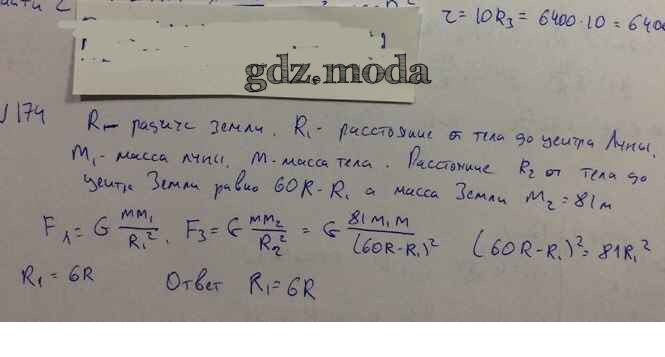 τ = 10R₃ = 6400·10 = 6400
gdz.moda
174
R – радиус Земли. R₁ - расстояние от тела до центра Луны.
M₁ - масса луны. M - масса тела. Расстояние R₂ от тела до
центра Земли равно 60R-R₁ а масса Земли M₂ = 81м
F₁ = G mm₁/R₁², F₃ = G mm₂/R₂² = G 81M₁M/(60R-R₁)² (60R-R₁)² = 81R₁²
R₁ = 6R Ответ R₁ = 6R